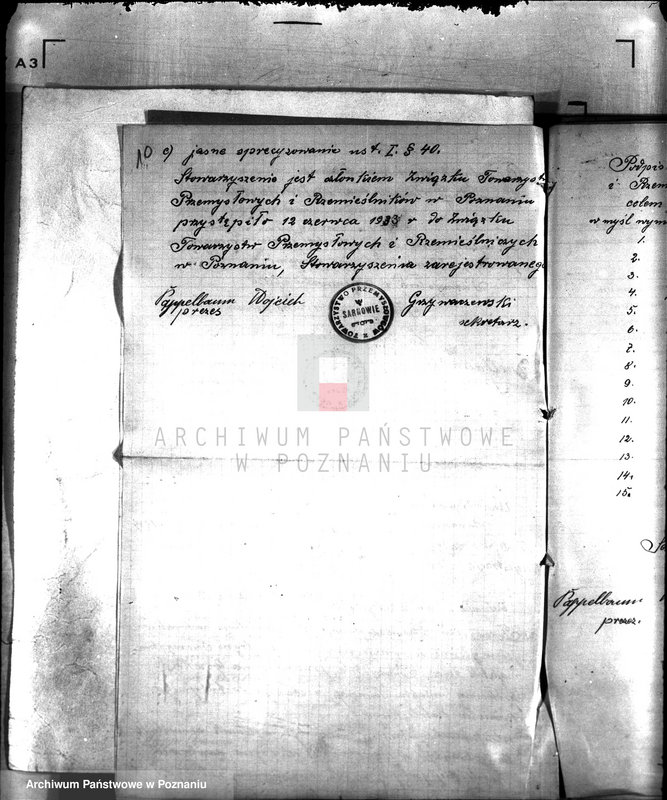 A3
10 c) jasne sprecyzowanie ust. I. § 40.
Stowarzyszenie jest członkiem Związku Towarzystw
Przemysłowych i Rzemieślników w Poznaniu
przystąpiło 12 czerwca 1933 r do Związku
Towarzystw Przemysłowych i Rzemieślniczych
w Poznaniu, Stowarzyszenia zarejestrowanego
Pappelbaum Wojciech
prezes
TOWARZYSTWO PRZEMYSŁOWCÓW
W
SARNOWIE
Grzywaczewski
sekretarz.
ARCHIWUM PAŃSTWOWE
W POZNANIU
Podpis
i Rzem
celem
w myśl wym
1.
2.
3.
4.
5.
6.
7.
8.
9.
10.
11.
12.
13.
14.
15.
Sa
Pappelbaum
prezes.
Archiwum Państwowe w Poznaniu